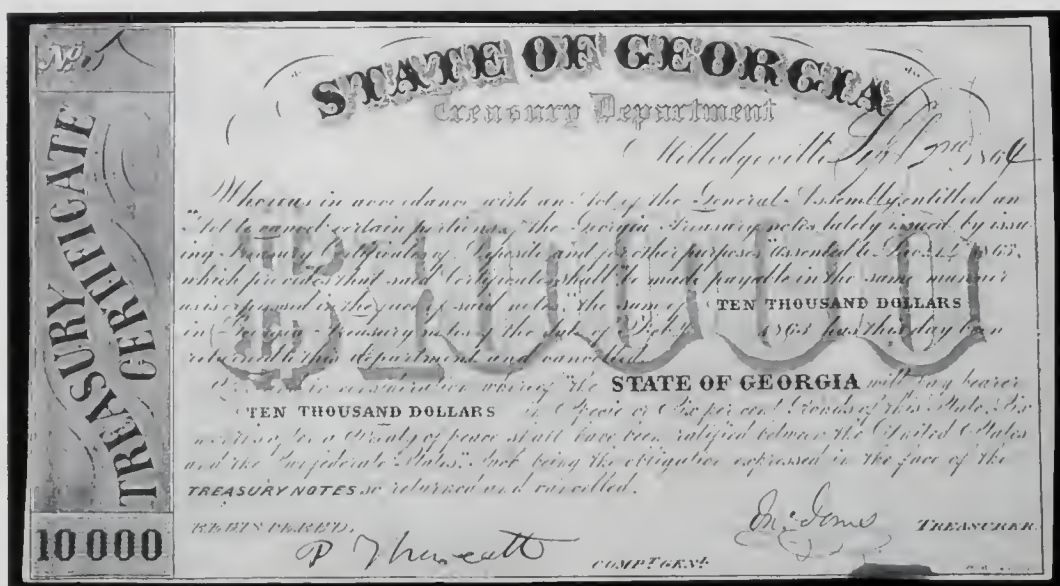 No. 5
STATE OF GEORGIA
Treasury Department
Milledgeville 1864
Whereas in accordance with an Act of the General Assembly, entitled an
"Act to cancel certain portions of the Georgia Treasury notes lately issued by issu
ing Treasury Certificates of Deposite and for other purposes" assented to Dec. 14 1863,
which provides that said Certificates shall be made payable in the same manner
as is expressed in the face of said notes "the sum of TEN THOUSAND DOLLARS
in Georgia Treasury notes of the date of 1863 has this day been
returned to this department and cancelled.
in consideration whereof the STATE OF GEORGIA will pay bearer
TEN THOUSAND DOLLARS in Specie or Six per cent Bonds of this State, Six
months after a Treaty of peace shall have been ratified between the United States
and the Confederate States," such being the obligation expressed in the face of the
TREASURY NOTES so returned and cancelled.
REGISTERED.
Jno. Jones TREASURER
P Thweatt COMPT GENL
$10000
TREASURY CERTIFICATE
10000